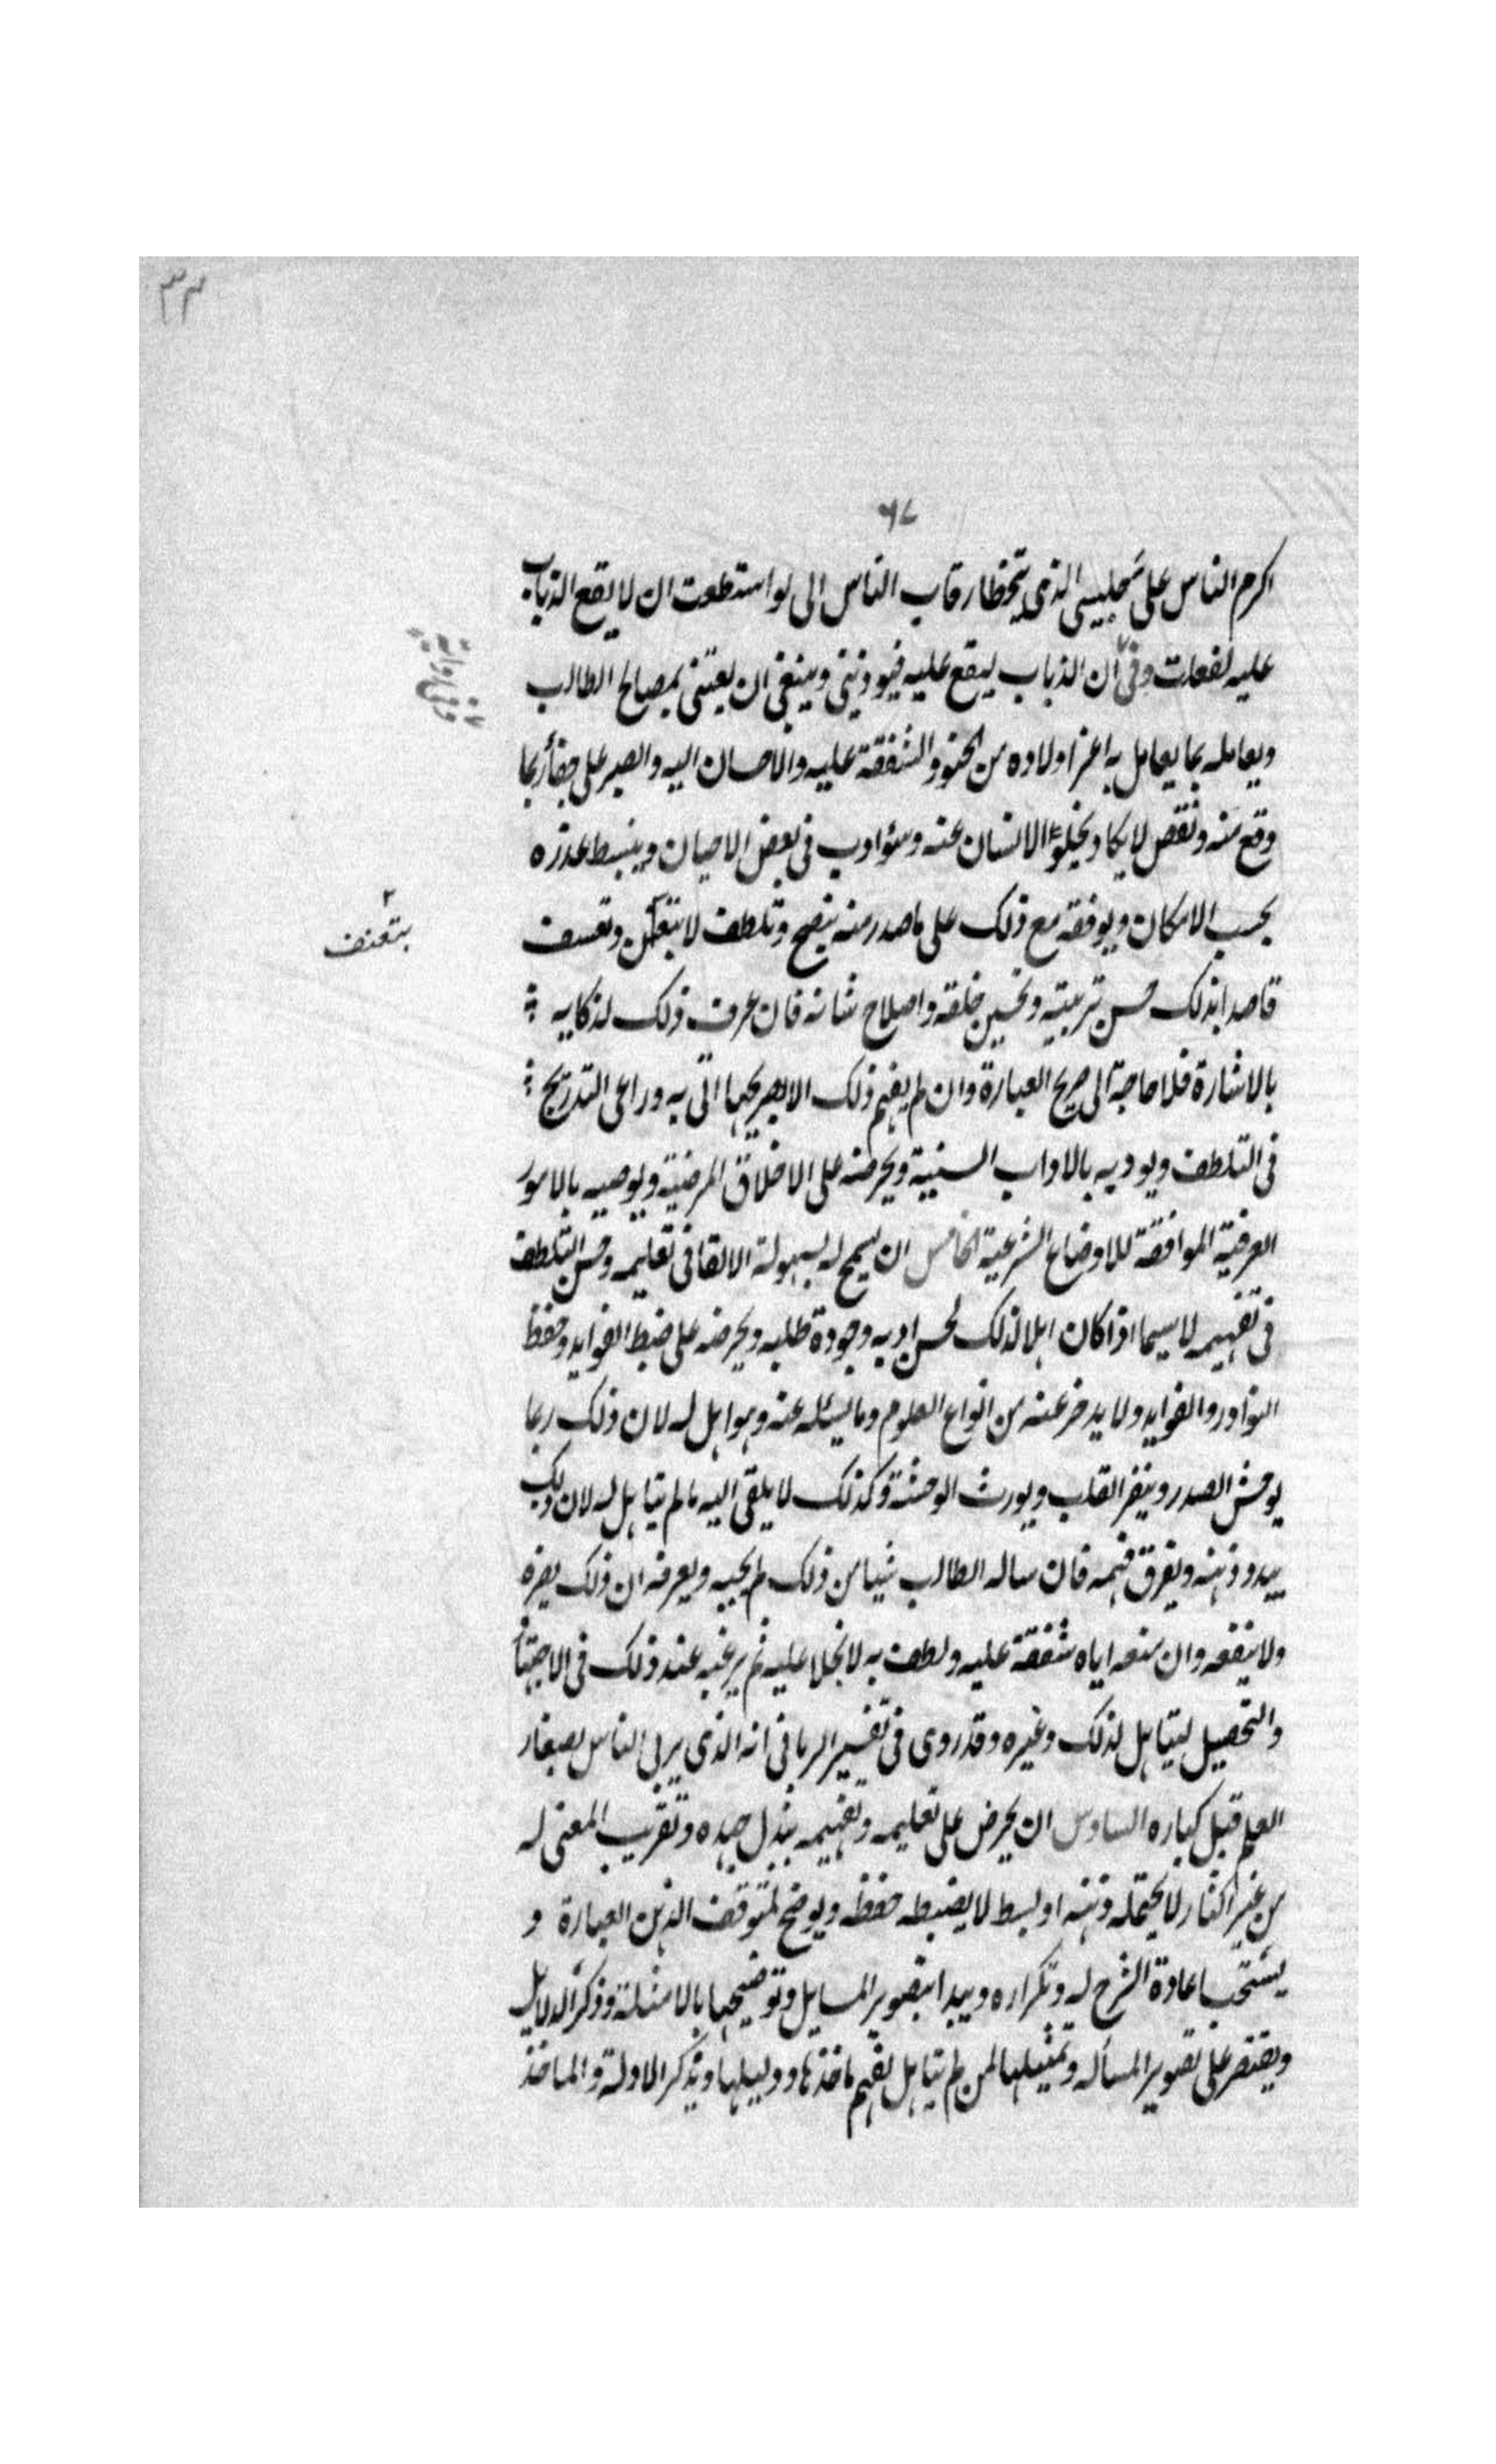 ٣٣
٦٧
اكرم الناس على جليسي الذي يتخطا رقاب الناس الى لو استطعت ان لا يقع الذباب
عليه لفعلت وفي ان الذباب ليقع عليه فيوذيني وينبغي ان يعتني بمصالح الطالب
ويعامله بما يعامل به اعز اولاده من الحنو والشفقة عليه والاحسان اليه والصبر على جفأ ربما
وقع منه ونقص لا يكاد يخلو الانسان عنه وسؤ ادب في بعض الاحيان ويبسط عذره
بحسب الامكان ويوقفه مع ذلك على ما صدر منه بنصح وتلطف لا وتعسف
بتعنف
قاصدا بذلك حسن تربيته وتحسين خلقه واصلاح شانه فان عرف ذلك لذكايه
بالاشارة فلا حاجة الى صريح العبارة وان لم يفهم ذلك الا بصريحها اتى به وراعى التدريج
في التلطف ويودبه بالاداب السنية ويحرضه على الاخلاق المرضية ويوصيه بالامور
العرفية الموافقة للاوضاع الشرعية الخامس ان يسمح له بسهولة الالقا في تعليمه وحسن التلطف
في تفهيمه لا سيما اذا كان اهلا لذلك لحسن ادبه وجودة طلبه ويحرضه على ضبط الفوايد وحفظ
النوادر والفرايد ولا يدخر عنه من انواع العلوم وما يسئله عنه وهو اهل له لان ذلك ربما
يوحش الصدر وينفر القلب ويورث الوحشة وكذلك لا يلقى اليه ما لم يتاهل له لان ذلك
يبدد ذهنه ويفرق فهمه فان ساله الطالب شيا من ذلك لم يجبه ويعرفه ان ذلك يضره
ولا ينفعه وان منعه اياه شفقة عليه ولطف به لا بخلا عليه ثم يرغبه عند ذلك في الاجتها
والتحصيل ليتاهل لذلك وغيره وقد روى في تفسير الرباني انه الذي يربي الناس بصغار
العلم قبل كباره السادس ان يحرض على تعليمه وتفهيمه ببذل جهده وتقريب المعنى له
من غير اكثار لا يحتمله ذهنه او بسط لا يضبطه حفظه ويوضح لمتوقف الذهن العبارة و
يستحب اعادة الشرح له وتكراره ويبدا بتصوير المسايل وتوضيحها بالامثلة وذكر الدلايل
ويقتصر على تصوير المسأله وتمثيلها لمن لم يتاهل لفهم ماخذها ودليلها ويذكر الادلة والماخذ